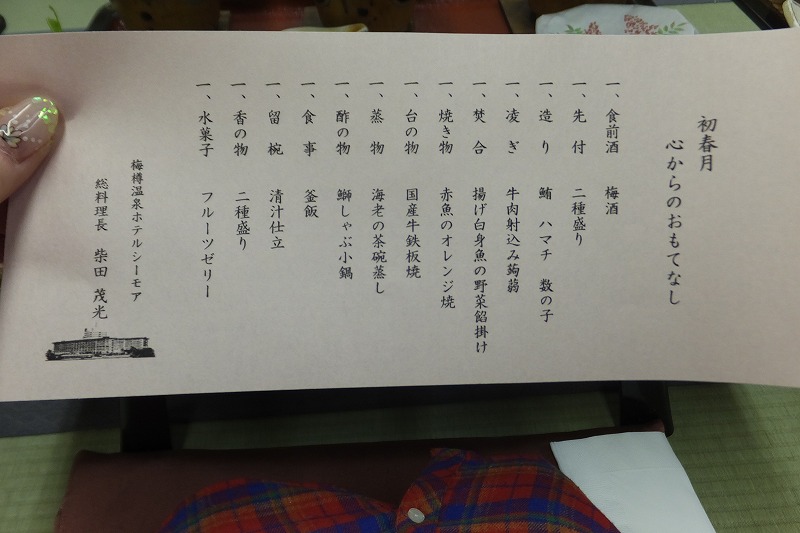 初春月
心からのおもてなし
一、食前酒 梅酒
一、先付 二種盛り
一、造り 鮪 ハマチ 数の子
一、凌ぎ 牛肉射込み蒟蒻
一、焚合 揚げ白身魚の野菜餡掛け
一、焼き物 赤魚のオレンジ焼
一、台の物 国産牛鉄板焼
一、蒸物 海老の茶碗蒸し
一、酢の物 鰤しゃぶ小鍋
一、食事 釜飯
一、留椀 清汁仕立
一、香の物 二種盛り
一、水菓子 フルーツゼリー
梅樽温泉ホテルシーモア
総料理長 柴田 茂光